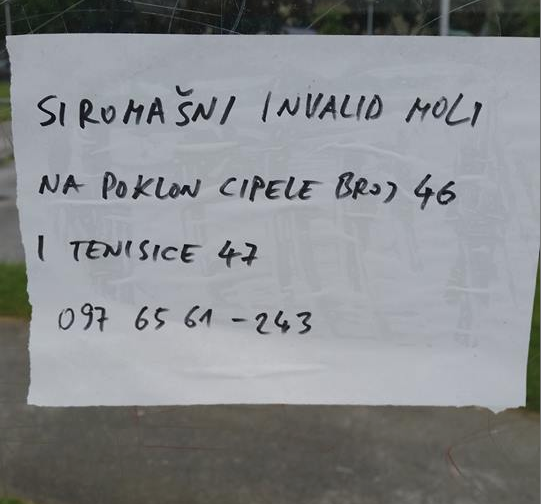 SIROMAŠNI INVALID MOLI
NA POKLON CIPELE BROJ 46
I TENISICE 47
097 65 61 - 243